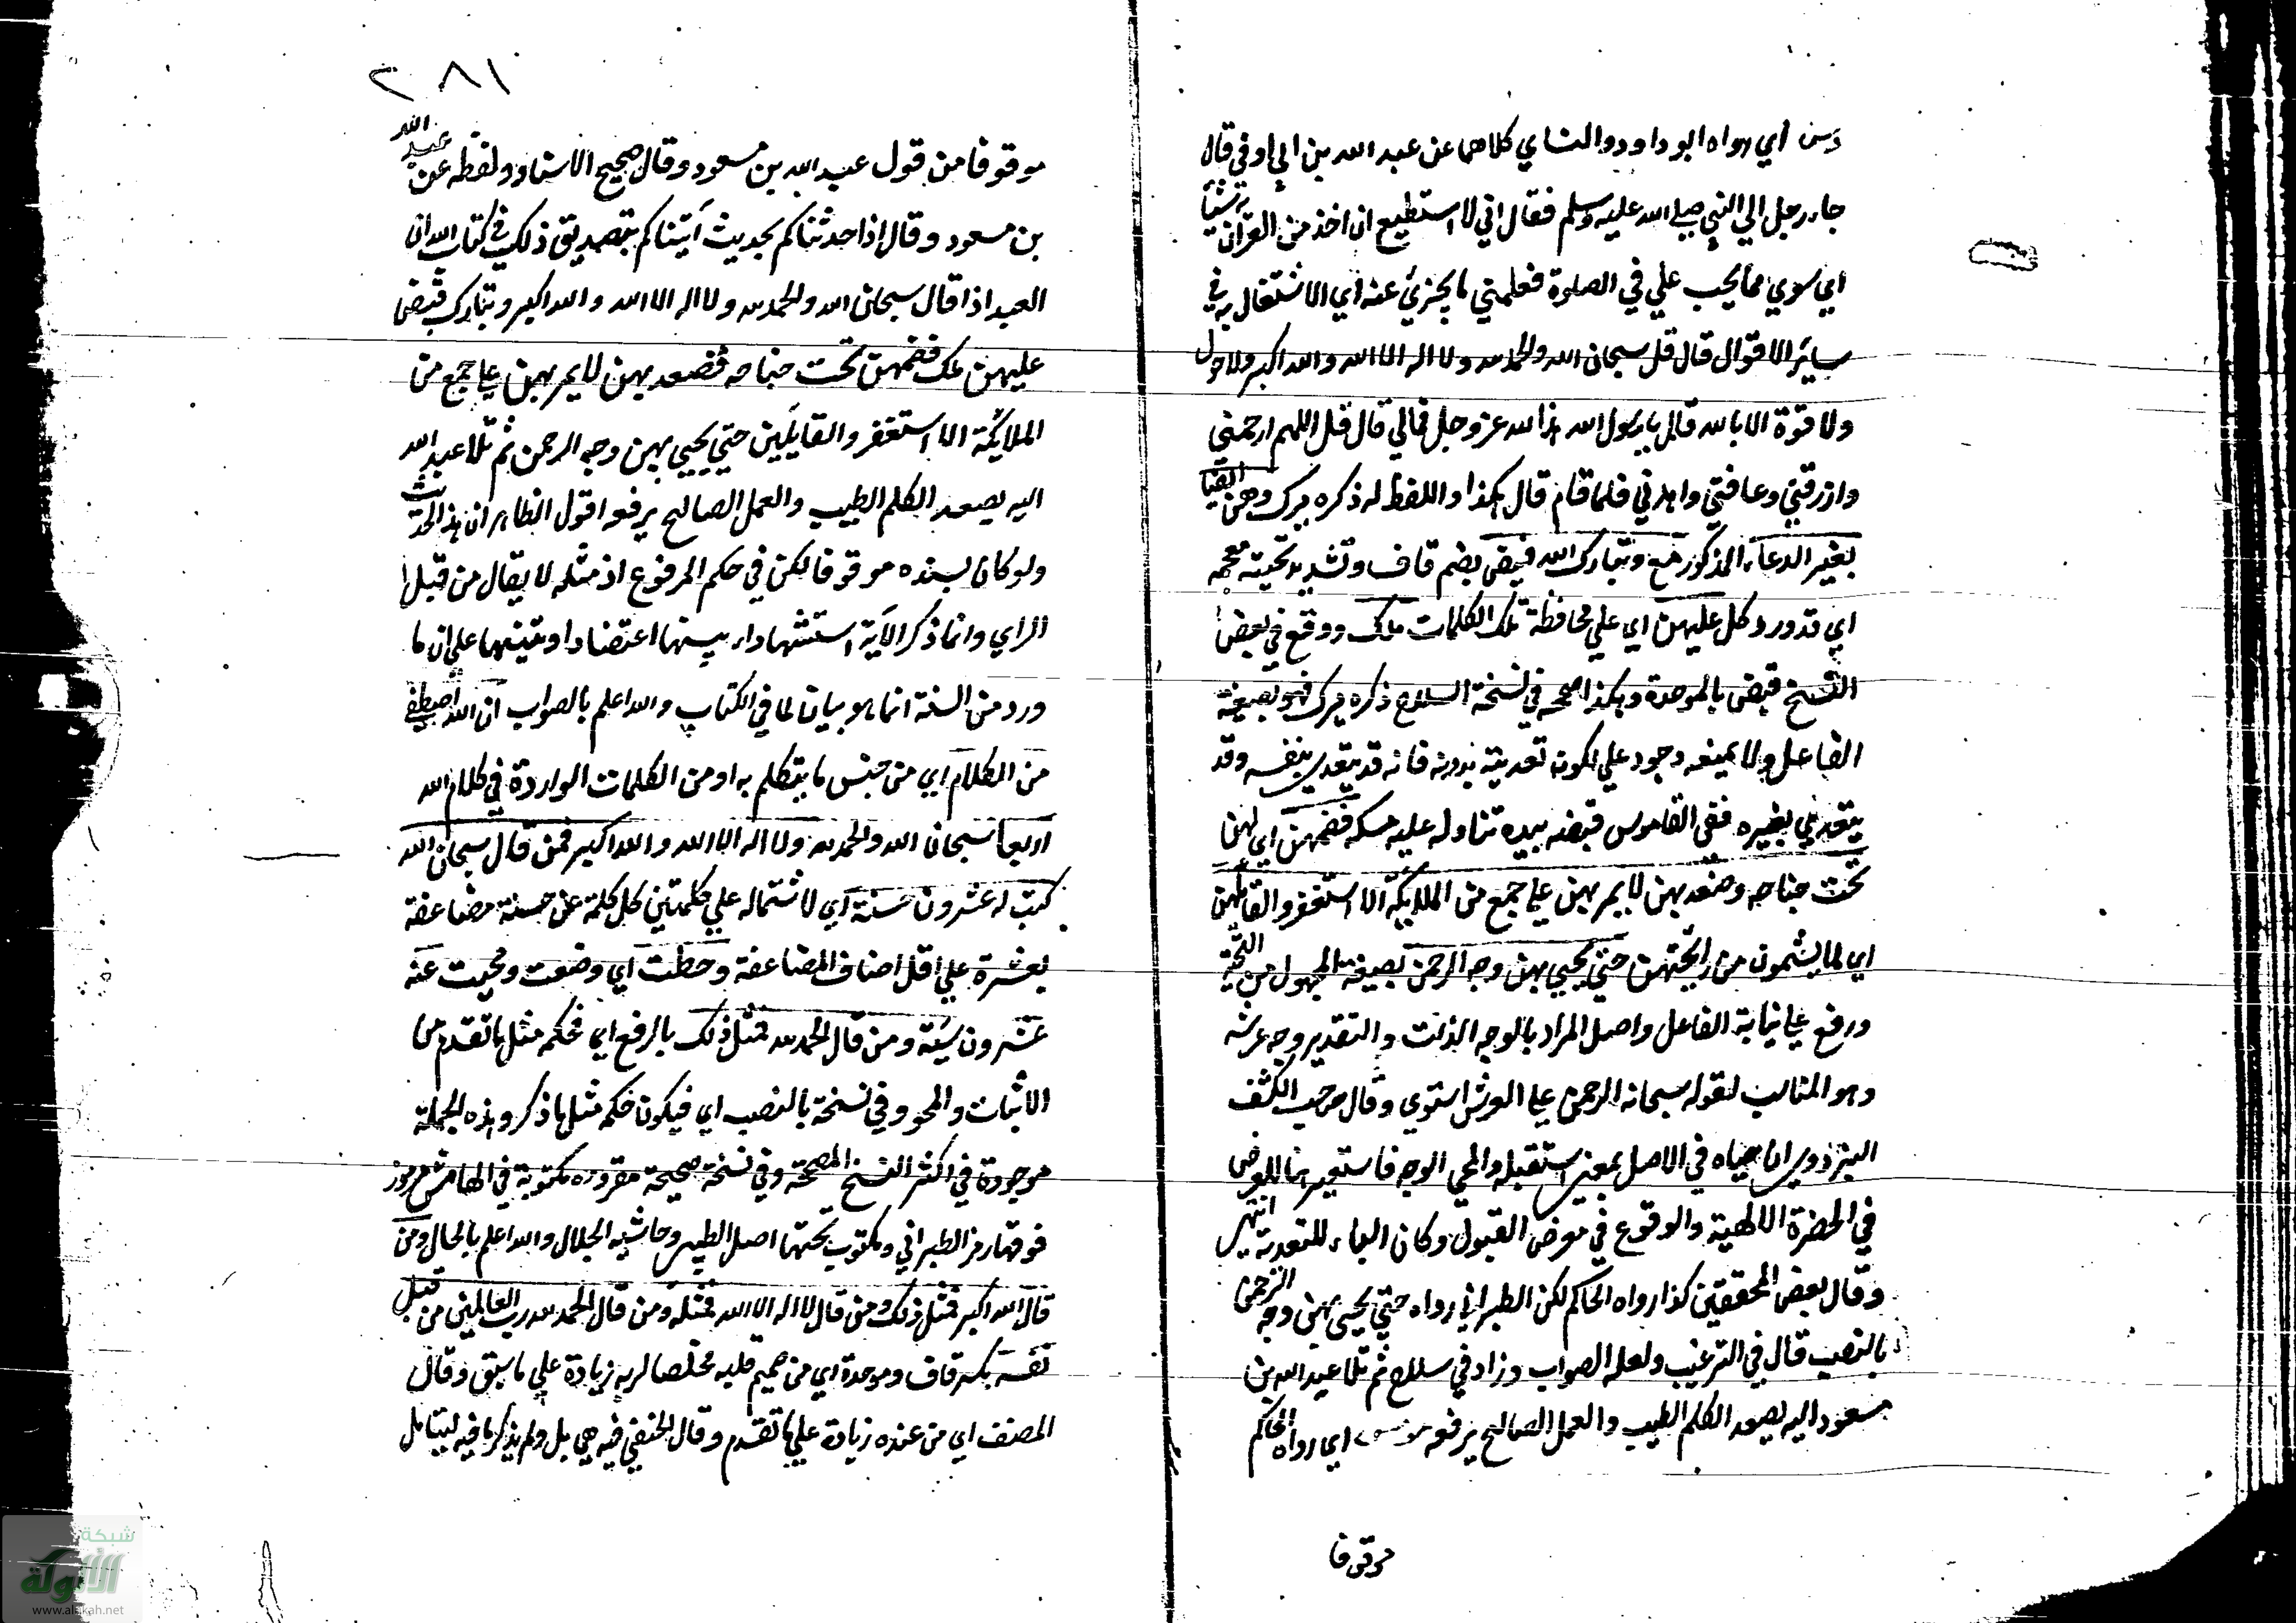 دس اي رواه ابو داود والنساي كلاهما عن عبد الله بن ابي اوفي قال
جاء رجل الي النبي صلي الله عليه وسلم فقال اني لا استطيع ان اخذ من القران شيئا
اي سوي مما يجب علي في الصلوة فعلمني ما يجزئ عنه اي الاشتغال به في
سائر الاقوال قال قل سبحان الله والحمد لله ولا اله الا الله والله اكبر ولا حول
ولا قوة الا بالله قال يا رسول الله هذا لله عز وجل فما لي قال قل اللهم ارحمني
وارزقني وعافني واهدني فلما قام قال هكذا واللفظ له ذكره ميرك وهن ايضا
بغير الدعاء المذكور مع وتبارك الله قيض بضم قاف وتشديد تحتية معجمة
اي قد ورد كل عليهن اي علي محافظة تلك الكلمات ملك ووقع في بعض
النسخ قبض بالموحدة وهكذا صححه في نسخة السلاح ذكره ميرك فهو بصيغة
الفاعل ولا يمنعه وجود علي لكونه تعديته بدونه فانه قد يتعدي بنفسه وقد
يتعدي بغيره ففي القاموس قبضه بيده تناوله عليه مسكه فضمهن اي لهن
تحت جناحه وصعد بهن لا يمر بهن علي جمع من الملايكة الا استغفروا لقائلهن
اي لما يشمون من رائحتهن حتي يحيي بهن وجه الرحمن بصيغة المجهول من التحية
ورفع علي نيابة الفاعل واصل المراد بالوجه الذات والتقدير وجه عرشه
وهو المناسب لقوله سبحانه الرحمن علي العرش استوي وقال صاحب الكشف
البزذوي ان حياه في الاصل بمعني استقبله والمحي الوجه فاستعير هنا للعرض
في الحضرة الالهية والوقوع في معرض القبول وكان الباء للتعدية انتهي
وقال بعض المحققين كذا رواه الحاكم لكن الطبراني رواه حتي يحيي بهن وجه الرحمن
بالنصب قال في الترغيب ولعله الصواب وزاد في سلاح ثم تلا عبد الله بن
مسعود اليه يصعد الكلم الطيب والعمل الصالح يرفعه مو مس اي رواه الحاكم
موقوفا
٢٨١
موقوفا من قول عبد الله بن مسعود وقال صحيح الاسناد ولفظه عن عبد الله
بن مسعود وقال اذا حدثناكم بحديث اتيناكم بتصديق ذلك في كتاب الله ان
العبد اذا قال سبحان الله والحمد لله ولا اله الا الله والله اكبر وتبارك قبض
عليهن ملك فضمهن تحت جناحه فصعد بهن لا يمر بهن علي جمع من
الملايكة الا استغفروا لقايلهن حتي يحيي بهن وجه الرحمن ثم تلا عبد الله
اليه يصعد الكلم الطيب والعمل الصالح يرفعه اقول الظاهر ان هذا الحديث
ولو كان بسنده موقوفا لكن في حكم المرفوع اذ مثله لا يقال من قبل
الراي وانما ذكر الآية استشهادا بينها اعتضادا وتنبيها علي ان ما
ورد من السنة انما هو بيان لما في الكتاب والله اعلم بالصواب ان الله اصطفي
من الكلام اي من جنس ما يتكلم به او من الكلمات الواردة في كلام الله
اربعا سبحان الله والحمد لله ولا اله الا الله والله اكبر فمن قال سبحان الله
كتبت له عشرون حسنة اي لاشتماله علي كلمتين كل كلمة عن حسنة مضاعفة
بعشرة علي اقل اصناف المضاعفة وحطت اي وضعت ومحيت عنه
عشرون سيئة ومن قال الحمد لله فمثل ذلك بالرفع اي فحكمه مثل ما تقدم من
الاثبات والمحو وفي نسخة بالنصب اي فيكون حكمه مثل ما ذكر وهذه الجملة
موجودة في اكثر النسخ المصححة وفي نسخة صحيحة مقروءه مكتوبة في الهامش مرموز
فوقها رمز الطبراني ومكتوب تحتها اصل الطبري وحاشيه الجلال والله اعلم بالحال ومن
قال الله اكبر فمثل ذلك ومن قال لا اله الا الله فمثله ومن قال الحمد لله رب العالمين من قبل
نفسه بكسر قاف وموحدة اي من صميم قلبه مخلصا لربه زيادة علي ما سبق وقال
المصنف اي من عنده زيادة علي ما تقدم وقال الحنفي فيه هي بل ولم يذكر ما فيه ليتامل
شبكة
الألوكة
www.alukah.net